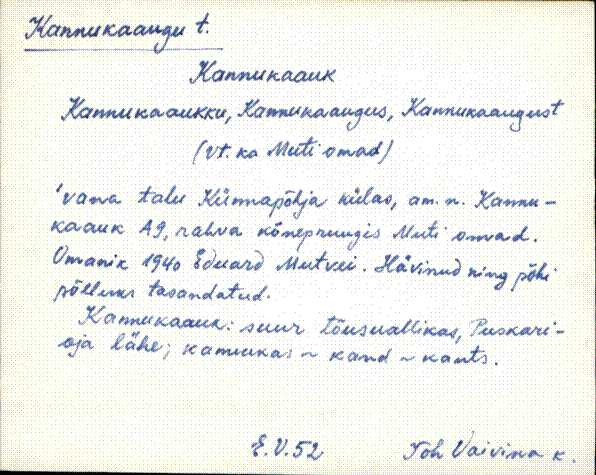 Kannukaaugu t.
Kannukaauk
Kannukaaukku, Kannukaaugus, Kannukaaugust
(vt. ka Muti omad)
'vana talu Künnapõhja külas, am. n. Kannu-
kaauk A9, rahva kõnepruugis Muti omad.
Omanik 1940 Eduard Mutvei. Hävinud ning põhi
põlluks tasandatud.
Kannukaauk: suur tõusuallikas, Puskari-
oja lähe; kannukas ~ kand ~ kants.
E.V.52 Voh Vaivina k.